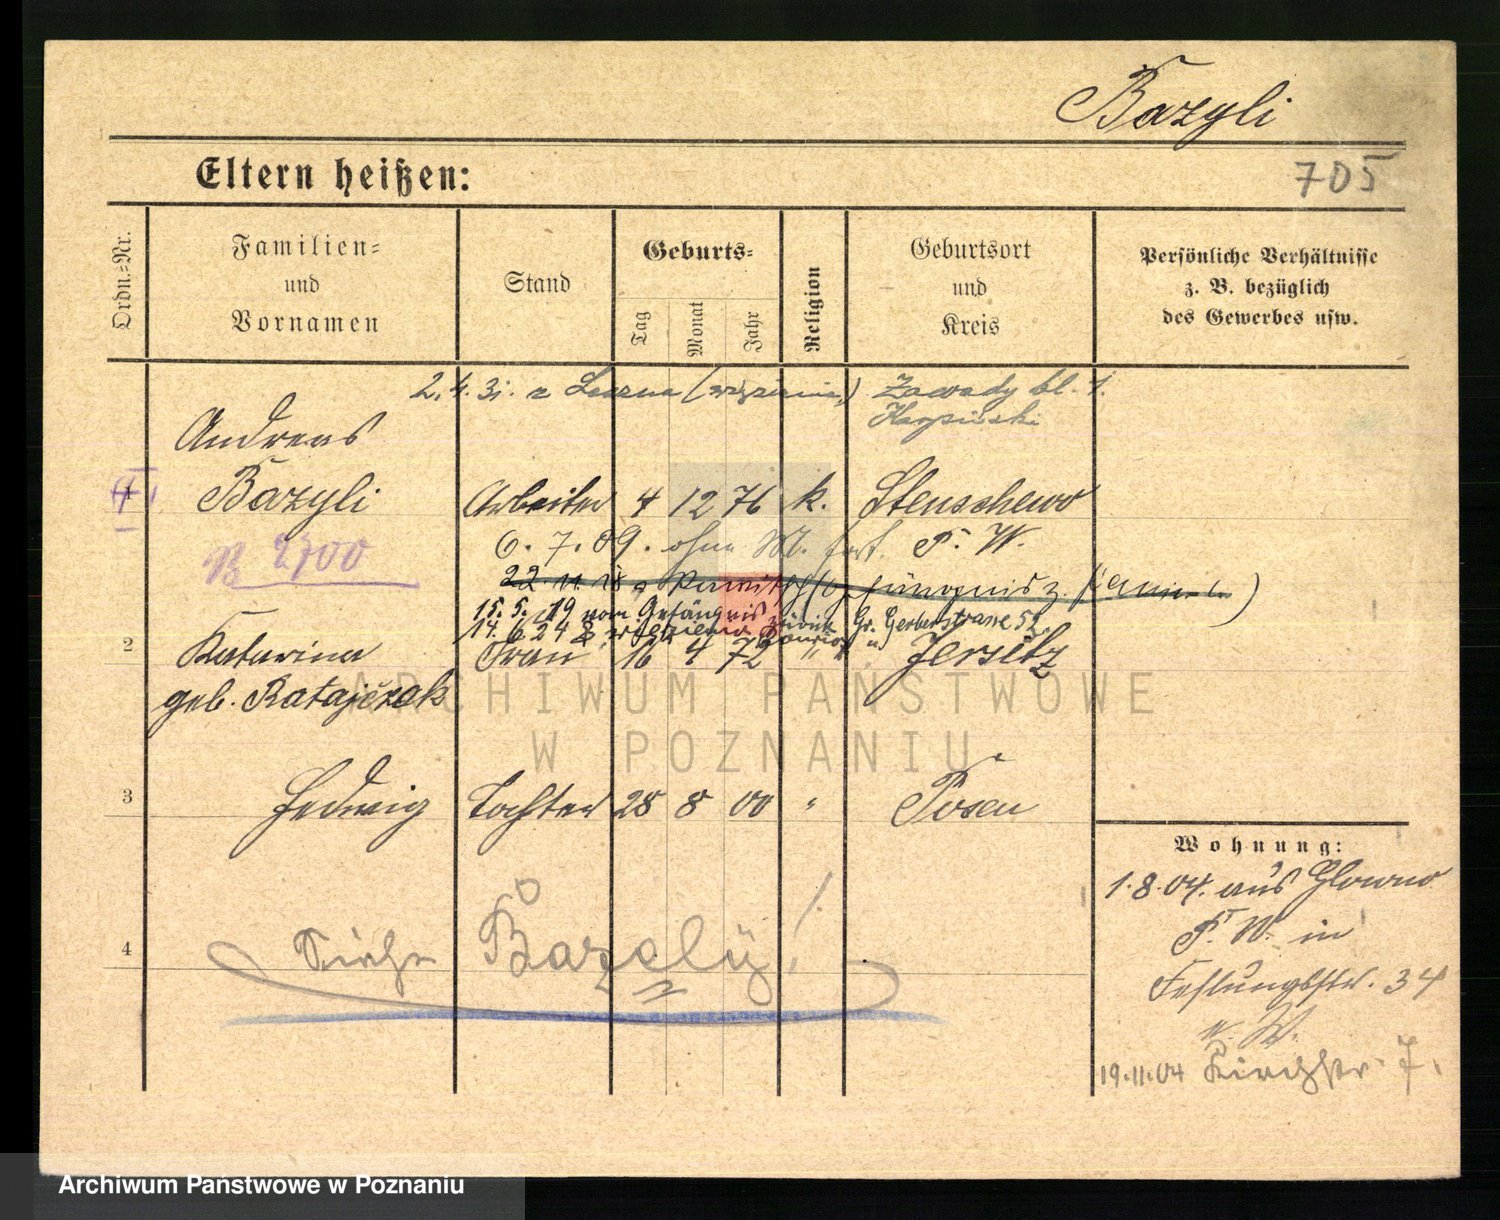 Bazyli
Eltern heißen:
705
Ordn.-Nr.
Familien-
und
Vornamen
Stand
Geburts-
Tag
Monat
Jahr
Religion
Geburtsort
und
Kreis
Persönliche Verhältnisse
z. B. bezüglich
des Gewerbes usw.
2.4.31. z (więzienia) Zawady bl. 1.
Karpiński
Andreas
1 Bazyli Arbeiter 4 12 76 k. Stenschewo
B 2700
6. 7. 09. ohne M. fort. P. W.
22. 11. 18
15. 5. 19 vom Gefängnis zurück Gr. Gerberstrasse 52.
14. 6 24
2 Katarina Frau 16 4 72 " Jersitz
geb. Ratajczak
ARCHIWUM PAŃSTWOWE
W POZNANIU
3 Hedwig Tochter 28 8 00 " Posen
Wohnung:
1.8.04. aus Glowno
P. W. in
Festungsstr. 34
n. W.
19.11.04 Kirchstr. 7.
4 Siehe Bazely!
Archiwum Państwowe w Poznaniu